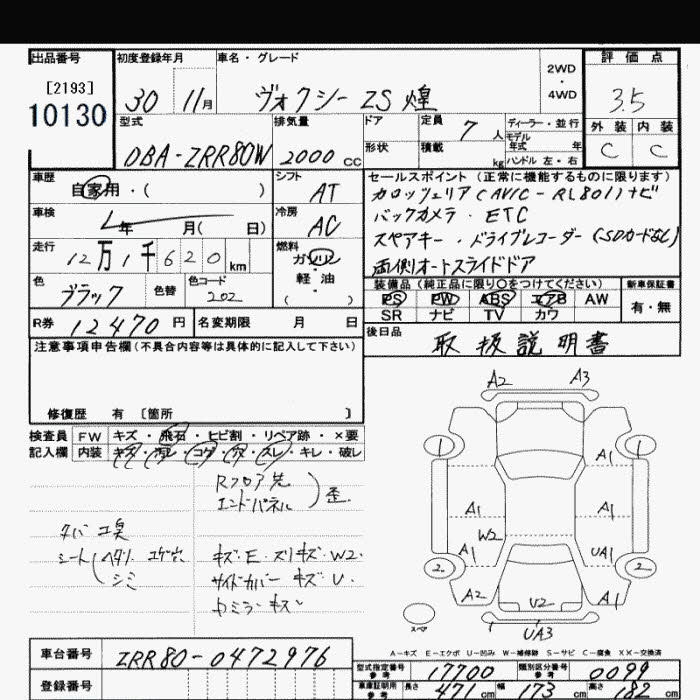 出品番号 初度登録年月 車名・グレード 評価点
[2193] 2WD・4WD
10130 30 11月 ヴォクシー ZS 煌 3.5
型式 排気量 ドア 定員 7人 ディーラー・並行 外装 内装
DBA-ZRR80W 2000cc 形状 積載 kg モデル年式 年 ハンドル 左・右 C C
車歴 シフト セールスポイント(正常に機能するものに限ります)
自家用・( ) AT カロッツェリア(AVIC-RL801)ナビ
車検 冷房 バックカメラ・ETC
年 月( 日) AC スペアキー・ドライブレコーダー(SDカードなし)
走行 燃料 両側オートスライドドア
12万1千620km ガソリン
色 色替 色コード 軽・油 装備品(純正品に限り○をつけてください) 新車保証書
ブラック 202 ( ) PS PW ABS エアB AW 有・無
SR ナビ TV カワ
R券 12470円 名変期限 月 日 後日品
取扱説明書
注意事項申告欄(不具合内容等は具体的に記入して下さい)
修復歴 有 〔箇所 〕
検査員 FW キズ・飛石・ヒビ割・リペア跡・×要
記入欄 内装 キズ・汚レ・コゲ・穴・スレ・キレ・破レ
Rフロア先
エンドパネル)歪
タバコ臭
シート(ヘタリ コゲ穴 キズ・E・スリキズ・W2・
シミ サイドカバー キズ・U・
ミラーキズ
A2 A3
1 1
A1
A1 A1
W2
A1 UA1
2 2
A2 U2 A1
スペア 1 UA3
A-キズ E-エクボ U-凹み W-補修跡 S-サビ C-腐食 XX-交換済
車台番号 ZRR80-0472976
型式指定番号 参考 17700 類別区分番号 参考 0099
登録番号
車庫証明用 参考 長さ 471cm 幅 173cm 高さ 182cm